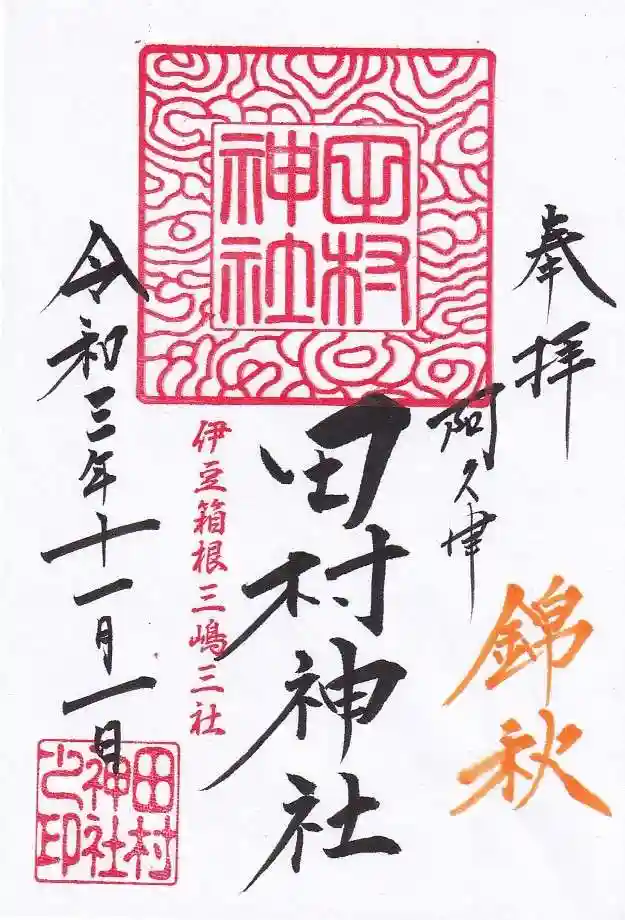 奉拝
錦秋
阿久津
田村神社
田村神社
伊豆箱根三嶋三社
令和三年十一月一日
田村神社之印